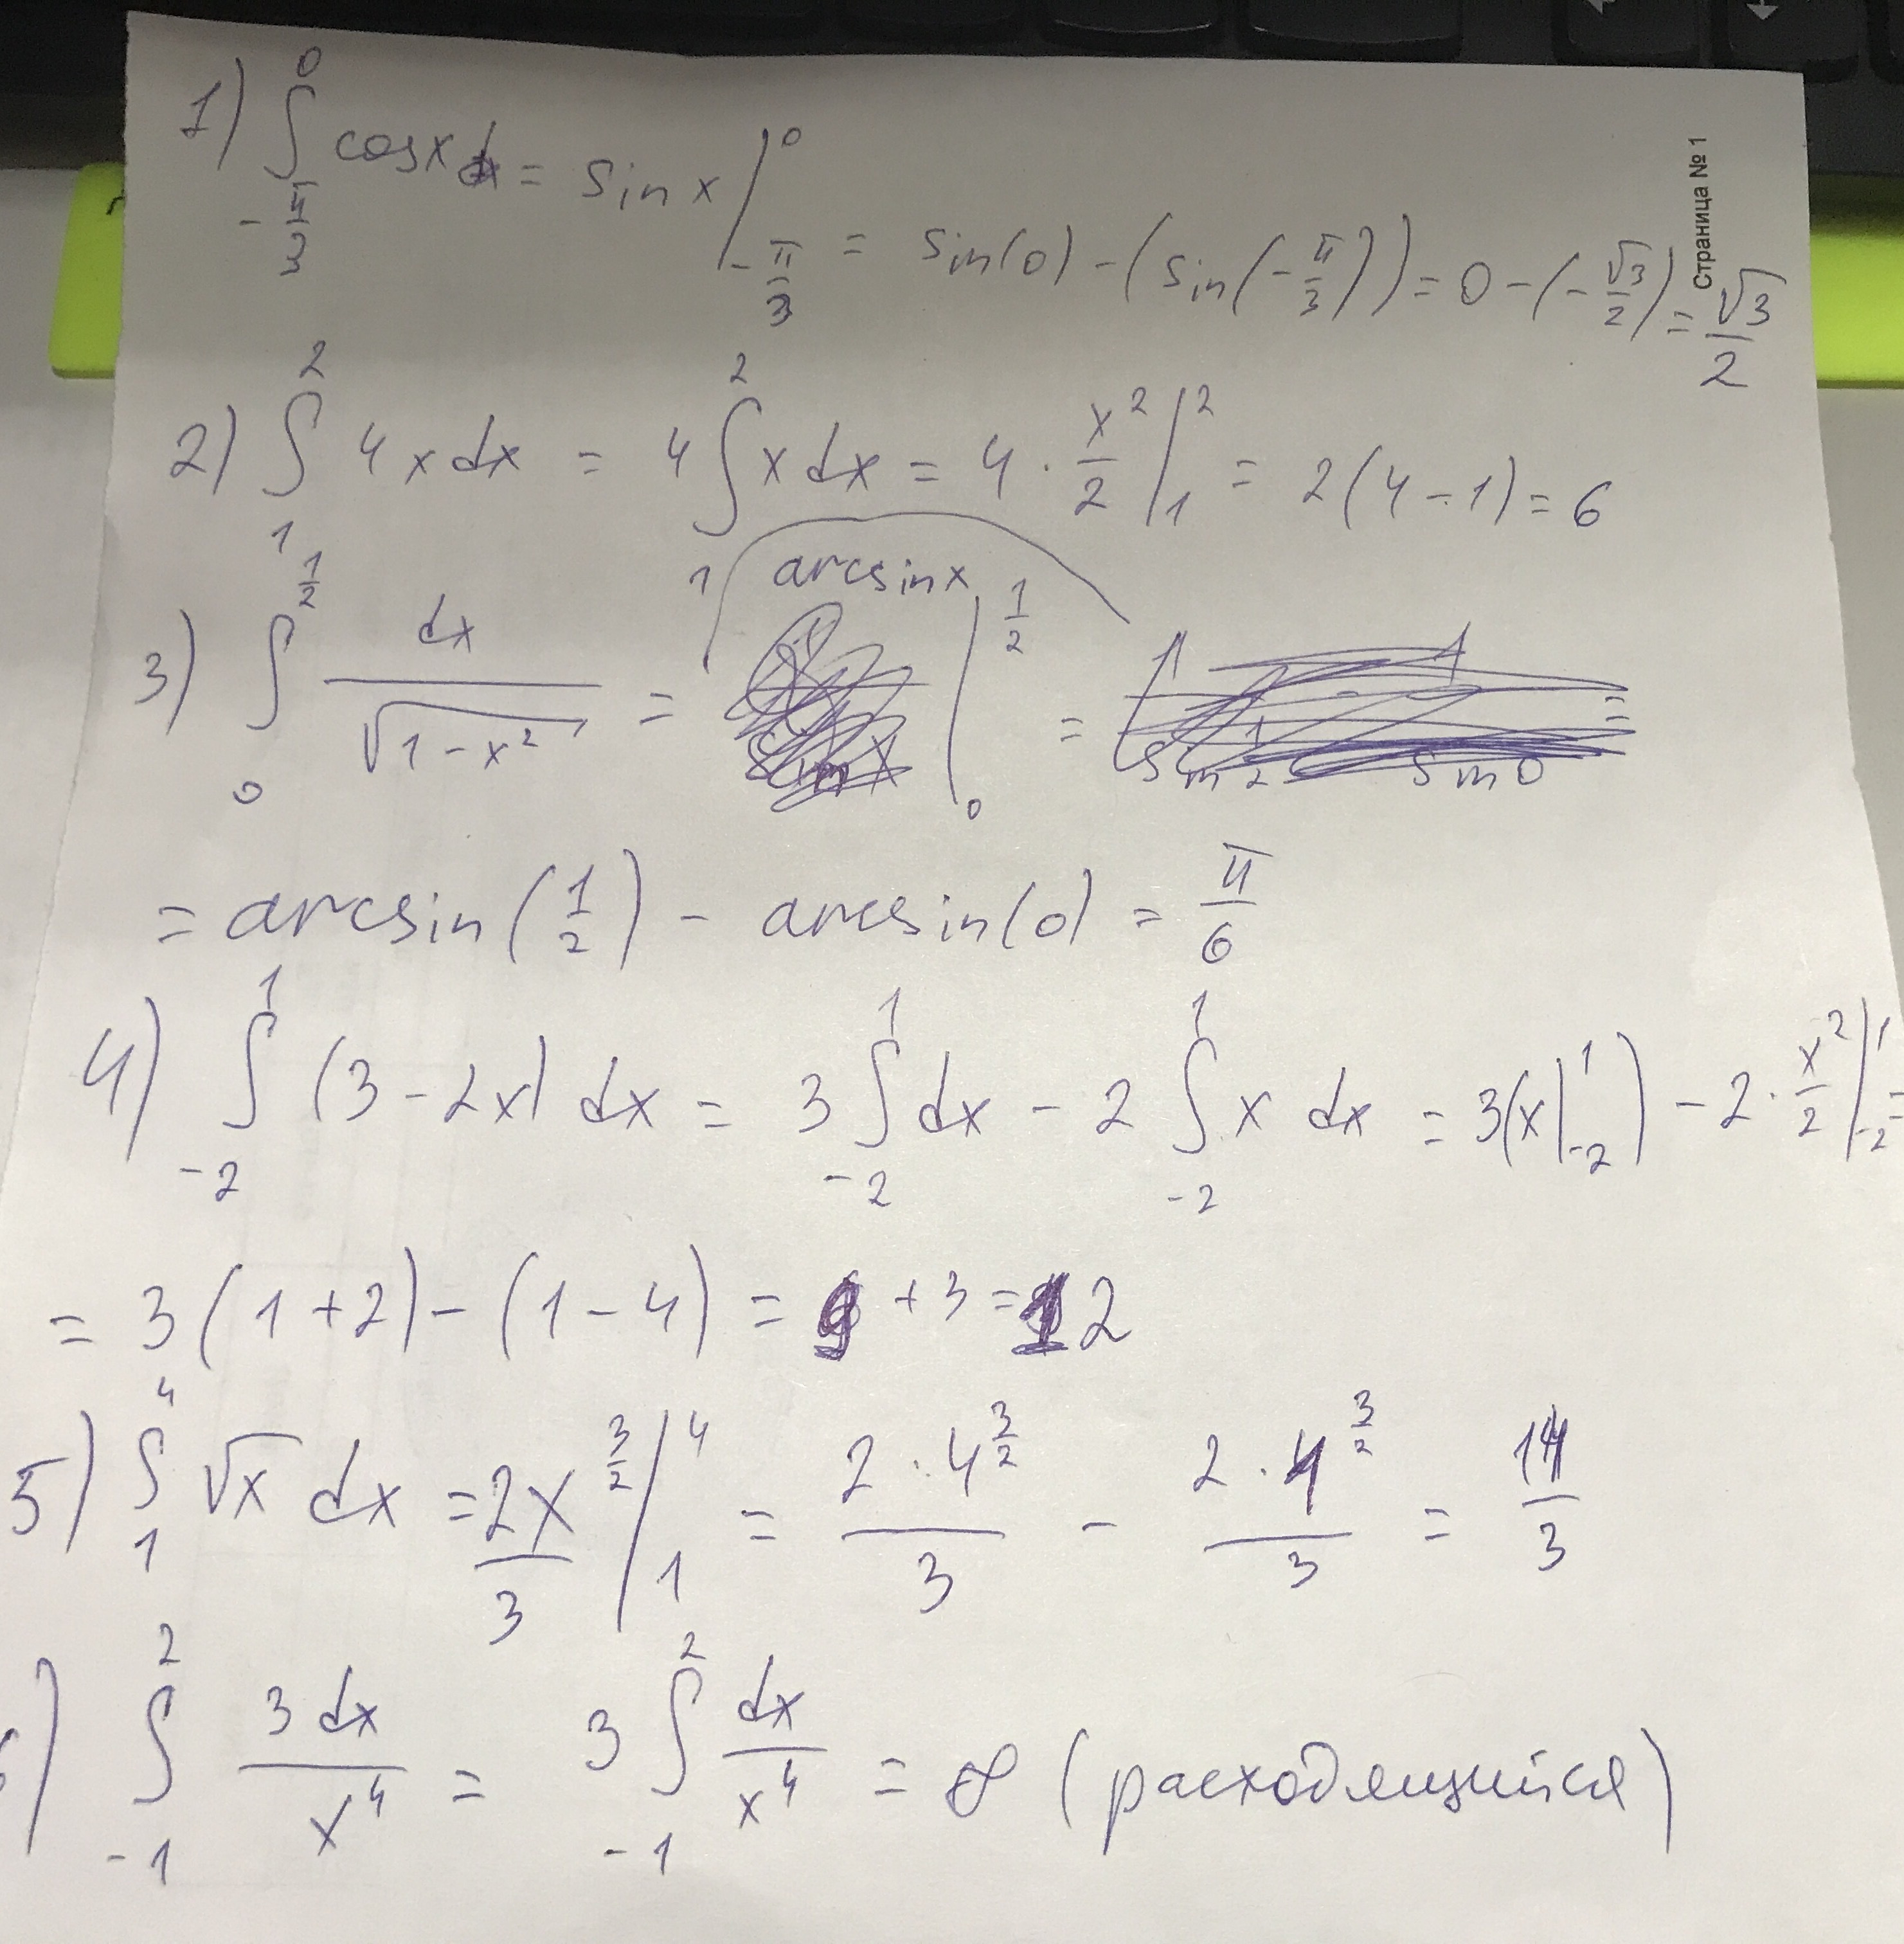 Страница № 1
1) ∫_{-π/3}^{0} cosx dx = sin x |_{-π/3}^{0} = sin(0) - (sin(-π/3)) = 0 - (-√3/2) = √3/2
2) ∫_{1}^{2} 4x dx = 4 ∫_{1}^{2} x dx = 4 · x²/2 |_{1}^{2} = 2(4-1) = 6
3) ∫_{0}^{1/2} dx/√(1-x²) = arcsin x |_{0}^{1/2} =
= arcsin(1/2) - arcsin(0) = π/6
4) ∫_{-2}^{1} (3-2x) dx = 3 ∫_{-2}^{1} dx - 2 ∫_{-2}^{1} x dx = 3(x|_{-2}^{1}) - 2 · x²/2 |_{-2}^{1} =
= 3(1+2) - (1-4) = 9 + 3 = 12
5) ∫_{1}^{4} √x dx = 2x^{3/2}/3 |_{1}^{4} = 2·4^{3/2}/3 - 2·1^{3/2}/3 = 14/3
) ∫_{-1}^{2} 3dx/x⁴ = 3 ∫_{-1}^{2} dx/x⁴ = ∞ (расходящийся)